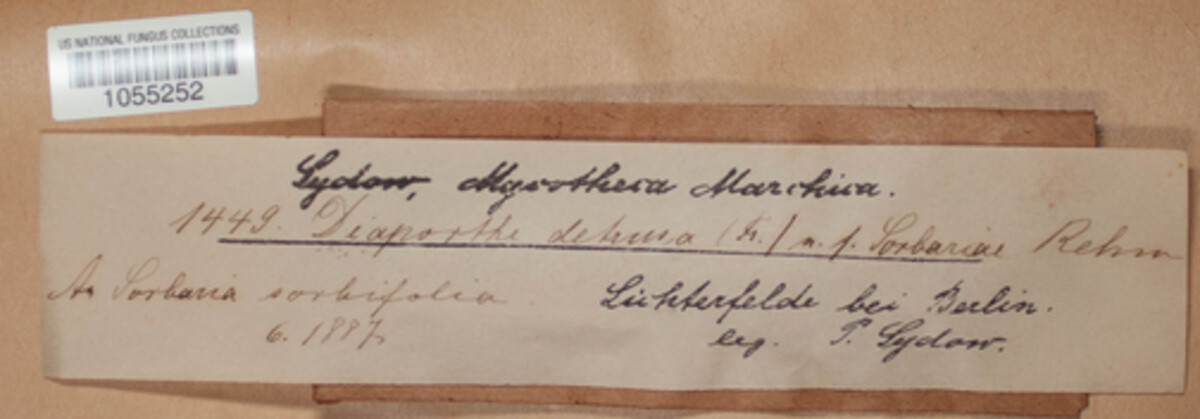 US NATIONAL FUNGUS COLLECTIONS
1055252
Sydow, Mycotheca Marchica.
1449. Diaporthe detrusa (Fr.) n. f. Sorbariae Rehm
An Sorbaria sorbifolia
6. 1887.
Lichterfelde bei Berlin.
leg. P. Sydow.